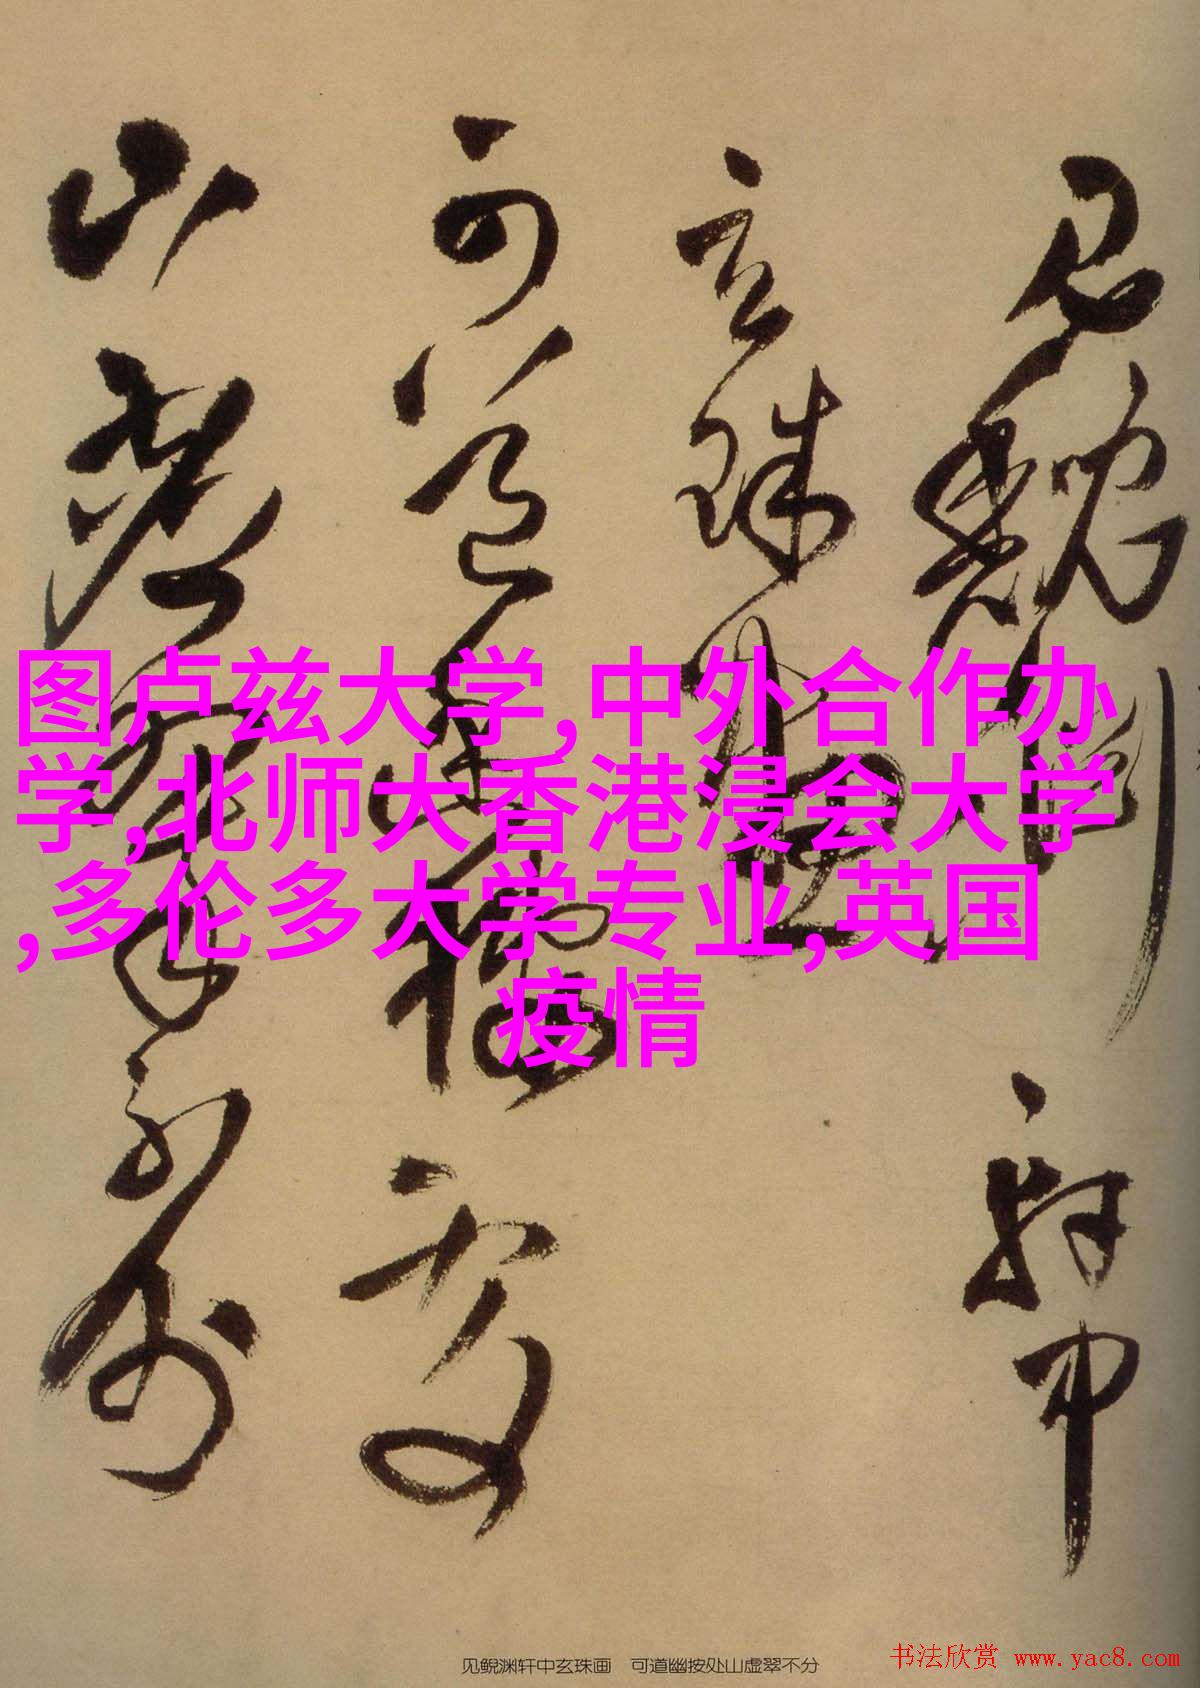 見鯢淵軒中
玄珠
可道
山
图卢兹大学,中外合作办
学,北师大香港浸会大学
,多伦多大学专业,英国
疫情
见鲵渊轩中玄珠画 可道幽按处山虚翠不分
书法欣赏 www.yac8.com